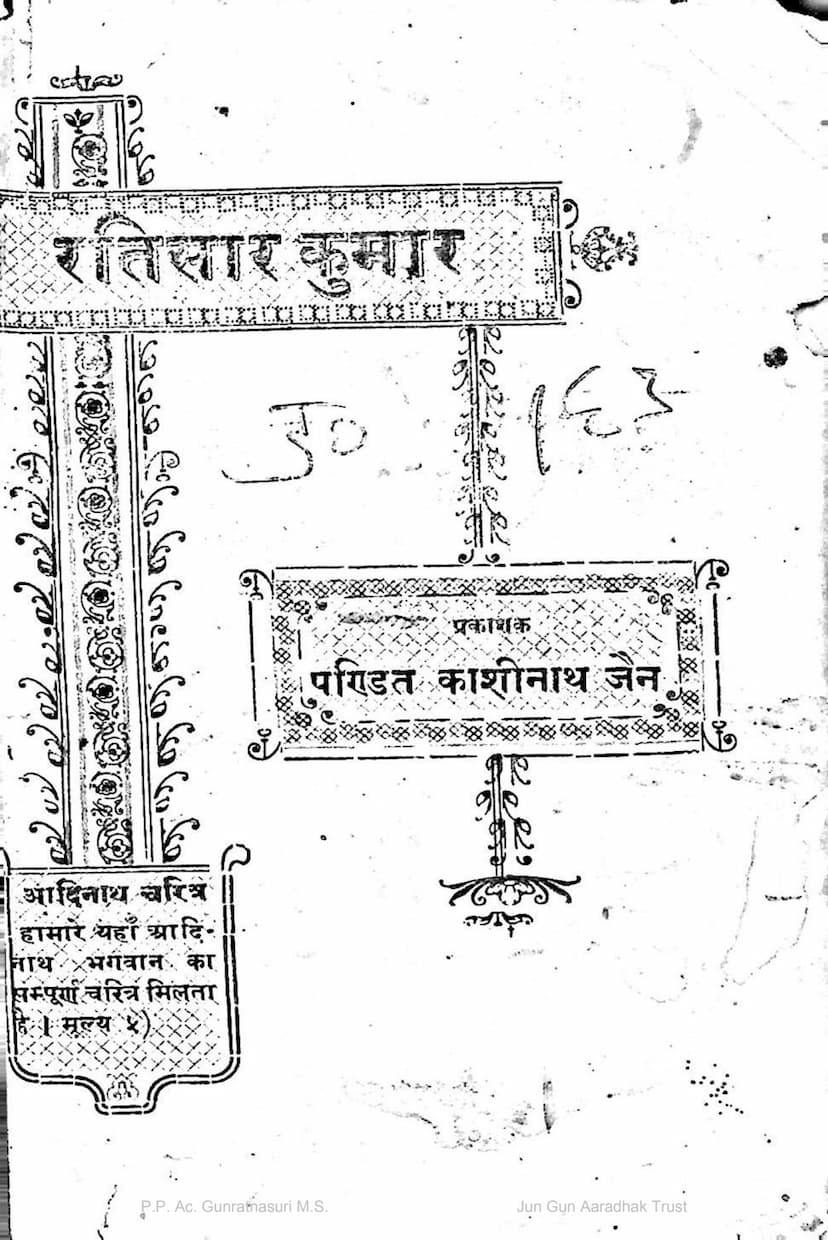 रतिसार कुमार
१६३
प्रकाशक
पण्डित काशीनाथ जैन
आदिनाथ चरित्र
हामारे यहाँ आदि-
नाथ भगवान का
सम्पूर्ण चरित्र मिलता
है । मूल्य ५)
P.P. Ac. Gunratnasuri M.S.
Jun Gun Aaradhak Trust